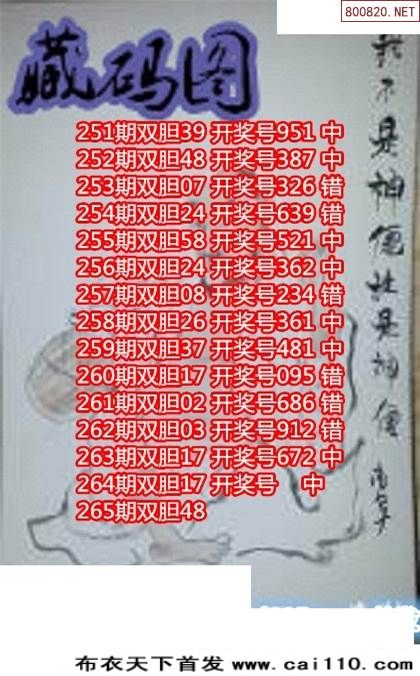 800820.NET
藏码图
251期双胆39 开奖号951 中
252期双胆48 开奖号387 中
253期双胆07 开奖号326 错
254期双胆24 开奖号639 错
255期双胆58 开奖号521 中
256期双胆24 开奖号362 中
257期双胆08 开奖号234 错
258期双胆26 开奖号361 中
259期双胆37 开奖号481 中
260期双胆17 开奖号095 错
261期双胆02 开奖号686 错
262期双胆03 开奖号912 错
263期双胆17 开奖号672 中
264期双胆17 开奖号 中
265期双胆48
不是神仙胜是神仙
布衣天下首发 www.cai110.com